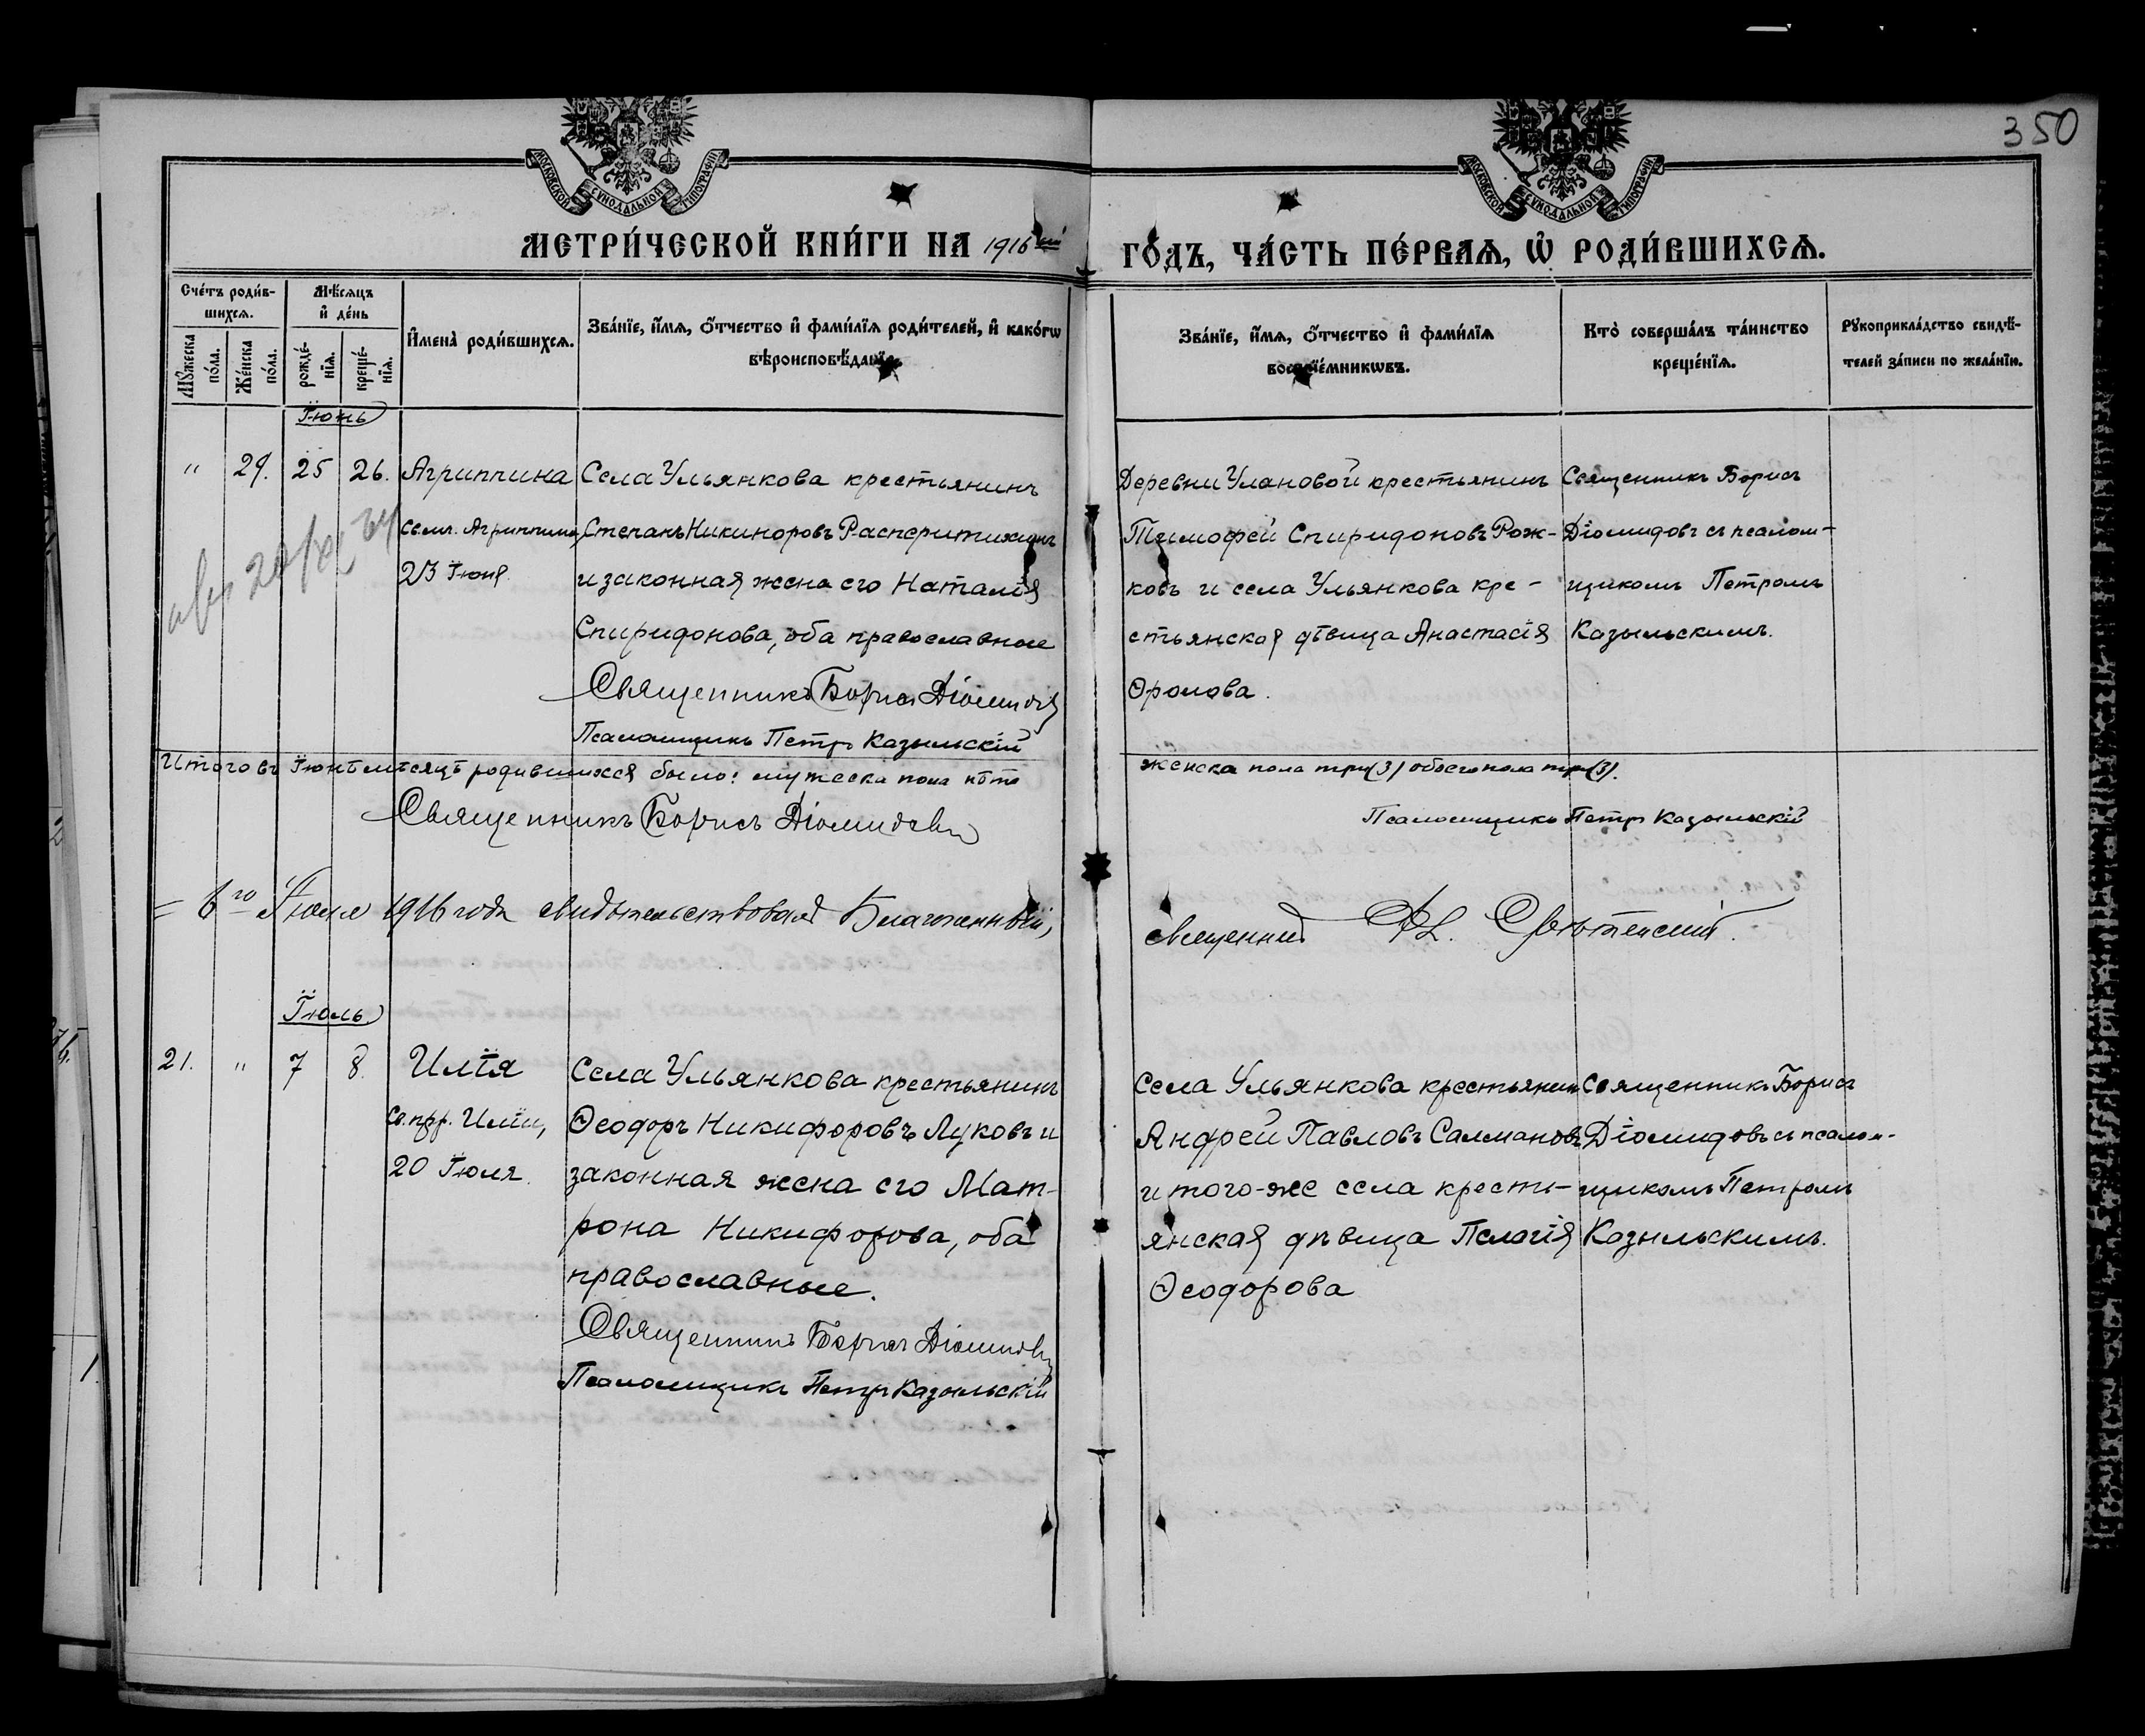 350
МОСКОВСКОЙ СУНОДАЛЬНОЙ ТИПОГРАФІИ
МОСКОВСКОЙ СУНОДАЛЬНОЙ ТИПОГРАФІИ
МЕТРИ́ЧЕСКОЙ КНИ́ГИ НА 1916 ый
ГО́ДЪ, ЧА́СТЬ ПЕ́РВАѦ, Ѡ҆ РОДИ́ВШИХСѦ.
Сче́тъ роди́в-
шихсѧ.
Мѣ́сѧцъ
и҆ де́нь
Мꙋ́жеска
по́ла.
Же́нска
по́ла.
рожде́-
нїѧ.
креще́-
нїѧ.
И҆мена̀ роди́вшихсѧ.
Зва́нїе, и҆́мѧ, ѻ҆́тчество и҆ фами́лїѧ роди́телей, и҆ како́гѡ
вѣроисповѣ́данїѧ.
Зва́нїе, и҆́мѧ, ѻ҆́тчество и҆ фами́лїѧ
воспрїе́мникѡвъ.
Кто̀ соверша́лъ та́инство
креще́нїѧ.
Рꙋкоприкла́дство свидѣ́-
телей за́писи по жела́нїю.
Іюнь
" 29. 25 26. Агриппина
Св. мч. Агриппины,
23 Іюня.
Села Ульянкова крестьянинъ
Степанъ Никиноровъ
и законная жена его Наталія
Спиридонова, оба православные
Священникъ Борисъ Діомидовъ
Псаломщикъ Петръ Казыльскій
Деревни Улановой крестьянинъ
Тимофей Спиридоновъ Рож-
ковъ и села Ульянкова кре-
стьянская дѣвица Анастасія
Ѳролова.
Священникъ Борисъ
Діомидовъ съ псалом-
щикомъ Петромъ
Казыльскимъ.
Итого въ Іюнѣ мѣсяцѣ родившихся было: мужеска пола нѣтъ
женска пола три (3) обоего пола три (3).
Священникъ Борисъ Діомидовъ
Псаломщикъ Петръ Казыльскій
6го Іюля 1916 года свидѣтельствовалъ Благочинный,
священникъ
Іюль
21. " 7 8. Илія
Св. пр. Иліи,
20 Іюля.
Села Ульянкова крестьянинъ
Ѳеодоръ Никифоровъ Луковъ и
законная жена его Мат-
рона Никифорова, оба
православные.
Священникъ Борисъ Діомидовъ
Псаломщикъ Петръ Казыльскій
Села Ульянкова крестьянинъ
Андрей Павловъ Салмановъ
и того-же села кресть-
янская дѣвица Пелагія
Ѳеодорова
Священникъ Борисъ
Діомидовъ съ псалом-
щикомъ Петромъ
Казыльскимъ.